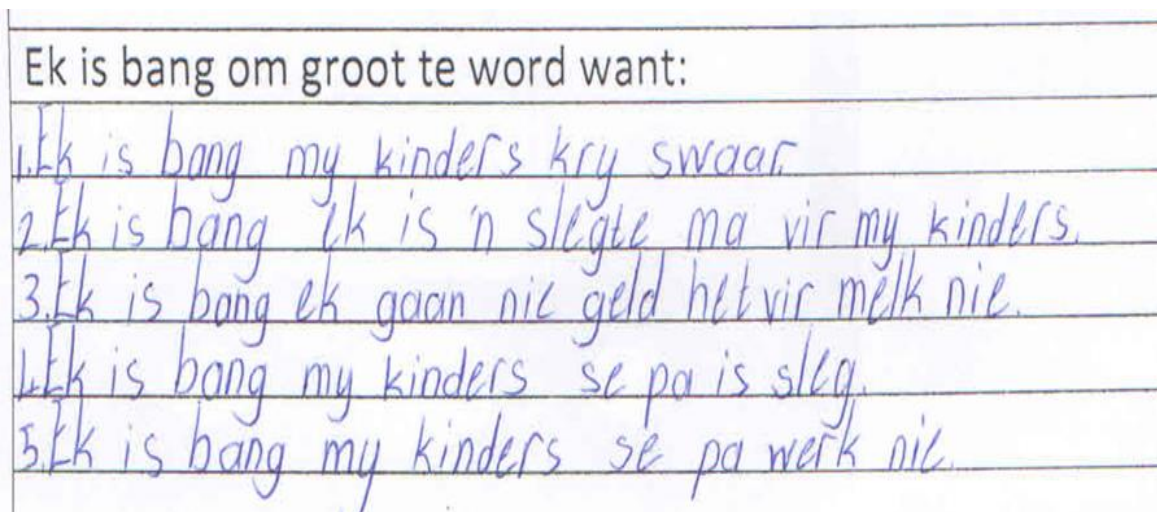 Ek is bang om groot te word want:
1. Ek is bang my kinders kry swaar.
2. Ek is bang ek is 'n slegte ma vir my kinders.
3. Ek is bang ek gaan nie geld het vir melk nie.
4. Ek is bang my kinders se pa is sleg.
5. Ek is bang my kinders se pa werk nie.